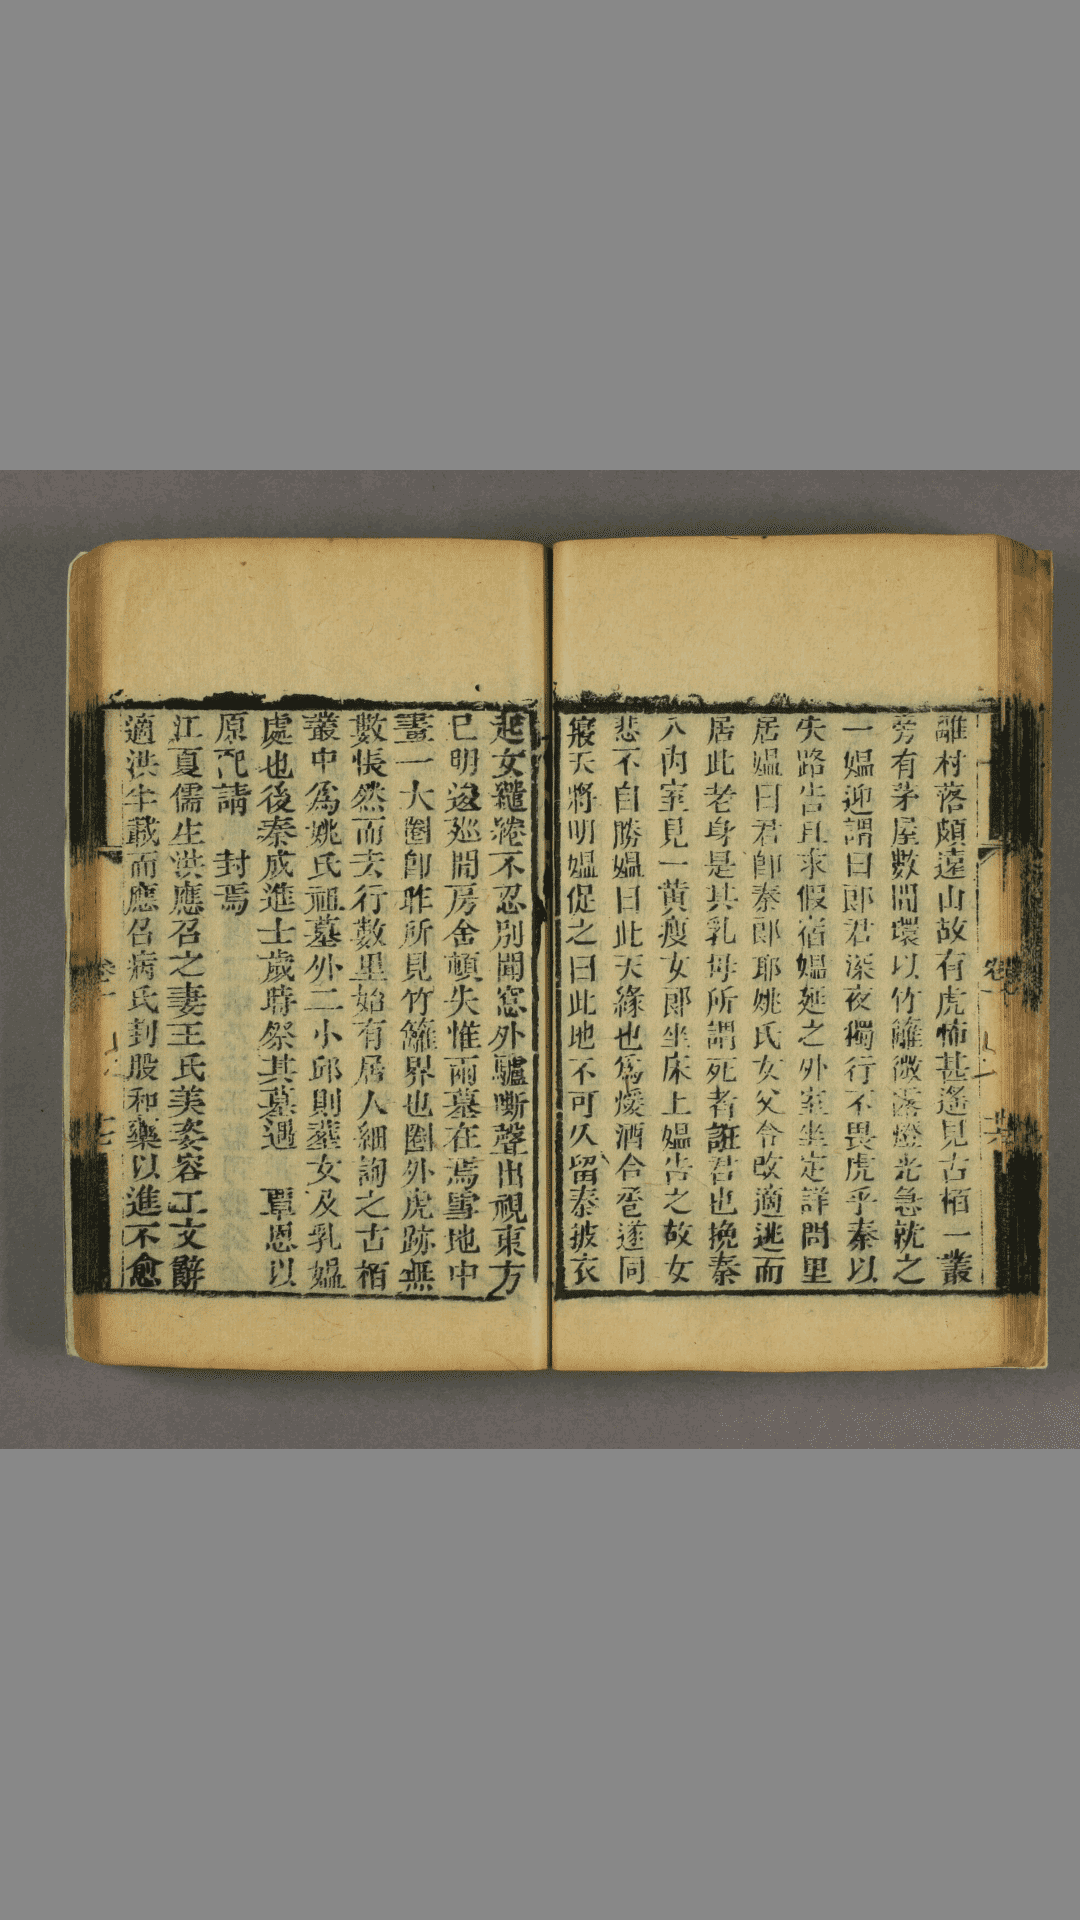 離村落頗遠山故有虎怖甚遙見古栢一叢
旁有茅屋數間環以竹籬微露燈光急就之
一媼迎謂曰郎君深夜獨行不畏虎乎秦以
失路告且求假宿媼延之外室坐定詳問里
居媼曰君卽秦郎耶姚氏女父令改適逃而
居此老身是其乳母所謂死者誑君也挽秦
入內室見一黃瘦女郎坐床上媼告之故女
悲不自勝媼曰此天緣也爲煖酒合卺遂同
寢天將明媼促之曰此地不可久留秦披衣
起女繾綣不忍別聞窓外驢嘶聲出視東方
已明逡廵間房舍頓失惟兩墓在焉雪地中
畫一大圈卽昨所見竹籬界也圈外虎跡無
數悵然而去行數里始有居人細詢之古栢
叢中爲姚氏祖墓外二小邱則葬女及乳媼
處也後秦成進士歲時祭其墓遇 覃恩以
原配請 封焉
江夏儒生洪應召之妻王氏美姿容工文辭
適洪半載而應召病氏刲股和藥以進不愈
卷一